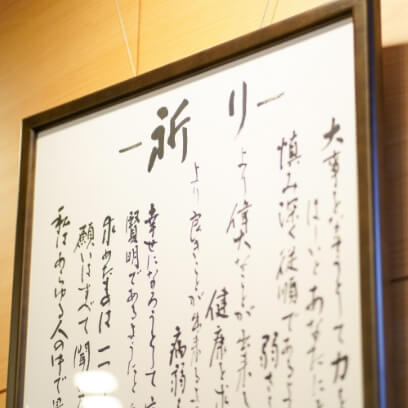 ー祈りー
大事をなそうとして力を
ほしいとあなたに
慎み深く従順であるよう
弱さ
より偉大なことが出来る
健康を
より良きことが出来るよう
病弱
幸せになろうとして
賢明であるようにと
求めたものは一
願いはすべて聞
私はあらゆる人の中で